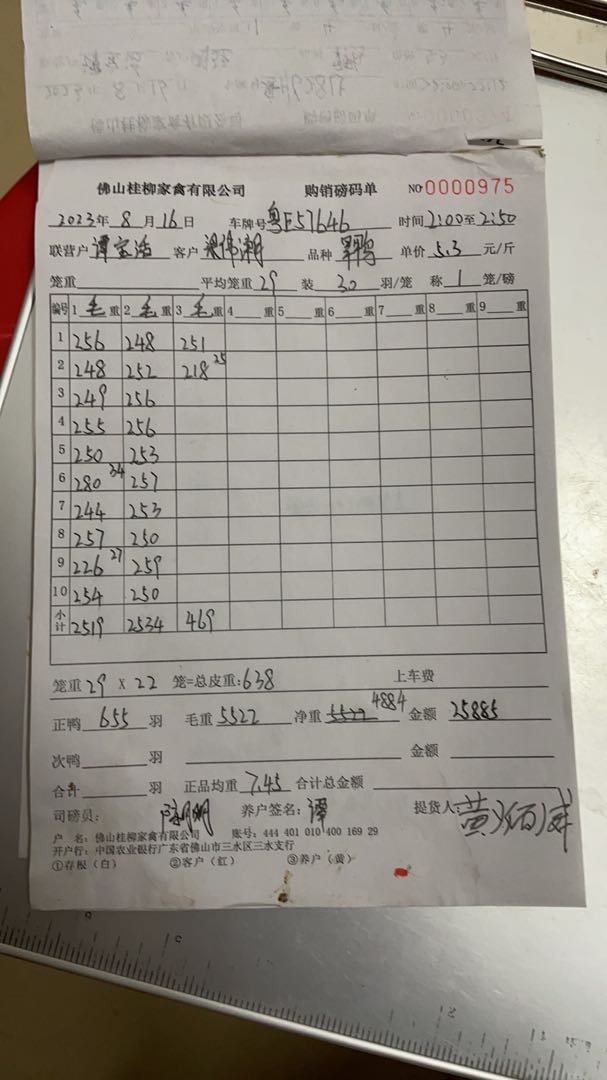 佛山桂柳家禽有限公司 购销磅码单 NO 0000975
2023年 8 月 16 日 车牌号 粤E57646 时间 2:00 至 2:50
联营户 谭宝浩 客户 梁伟潮 品种 单价 5.3 元/斤
笼重 平均笼重 29 装 30 羽/笼 称 1 笼/磅
编号 1 毛 重 2 毛 重 3 毛 重 4 重 5 重 6 重 7 重 8 重 9 重
1 256 248 251
2 248 252 218 25
3 249 256
4 255 256
5 250 253
6 280 34 257
7 244 253
8 257 250
9 226 27 259
10 254 250
小计 2519 2534 469
笼重 29 X 22 笼=总皮重: 638 上车费
正鸭 655 羽 毛重 5522 净重 5522 4884 金额 25885
次鸭 羽 金额
合计 羽 正品均重 7.45 合计总金额
司磅员: 养户签名: 谭 提货人:
户 名: 佛山桂柳家禽有限公司 账号: 444 401 010 400 169 29
开户行: 中国农业银行广东省佛山市三水区三水支行
①存根（白） ②客户（红） ③养户（黄）